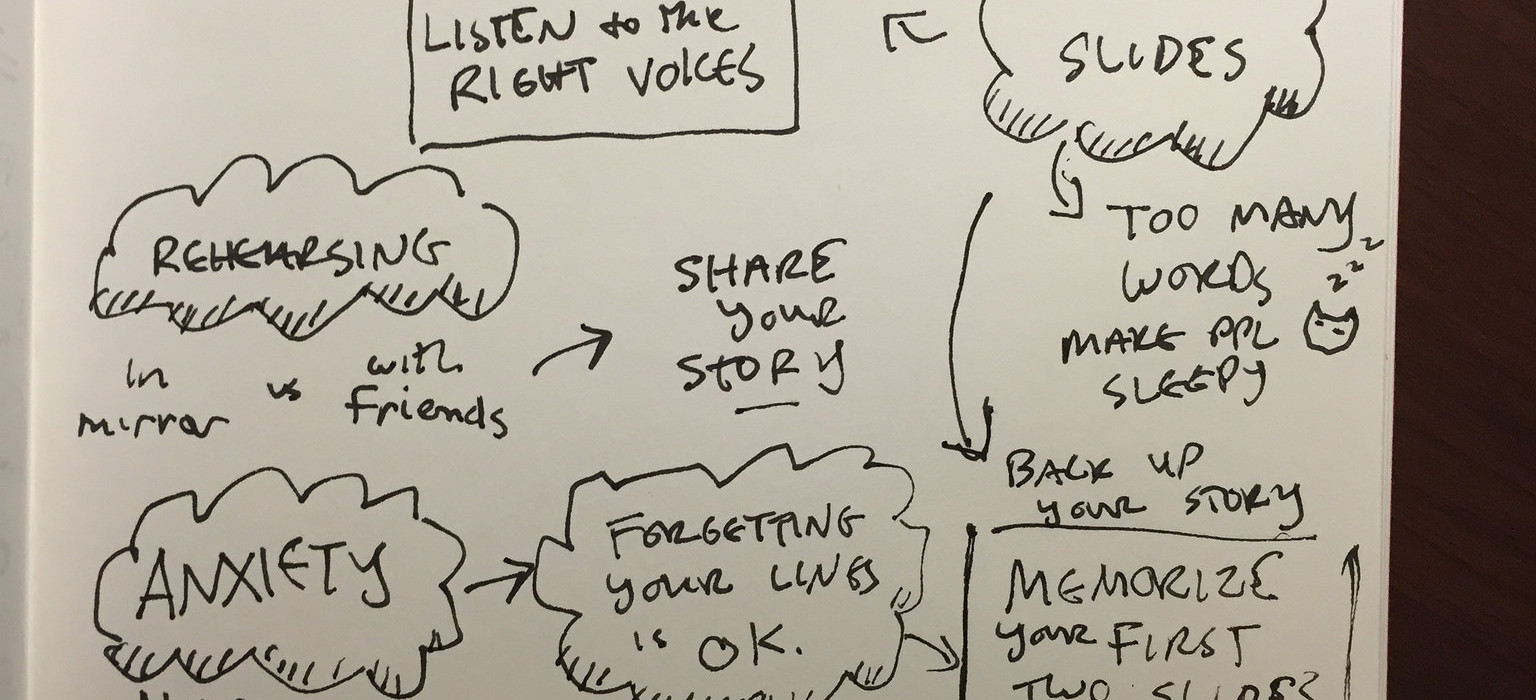 LISTEN to the
RIGHT VOICES
SLIDES
TOO MANY
WORDS
MAKE PPL
SLEEPY
z z z
REHEARSING
in
mirror
vs
with
friends
SHARE
your
STORY
BACK UP
your STORY
ANXIETY
FORGETTING
your LINES
is OK.
MEMORIZE
your FIRST
TWO SLIDES